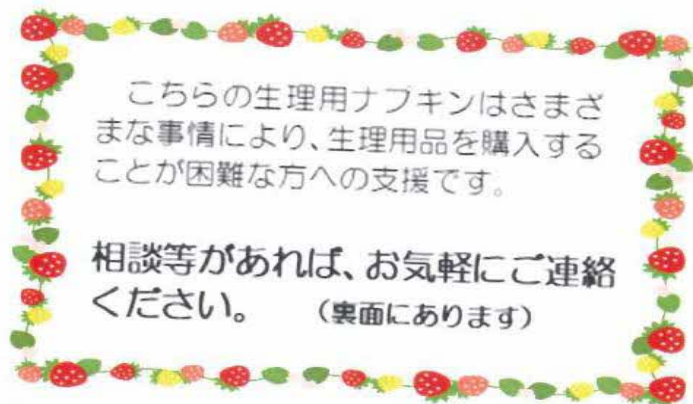 こちらの生理用ナプキンはさまざ
まな事情により、生理用品を購入する
ことが困難な方への支援です。
相談等があれば、お気軽にご連絡
ください。 （裏面にあります）